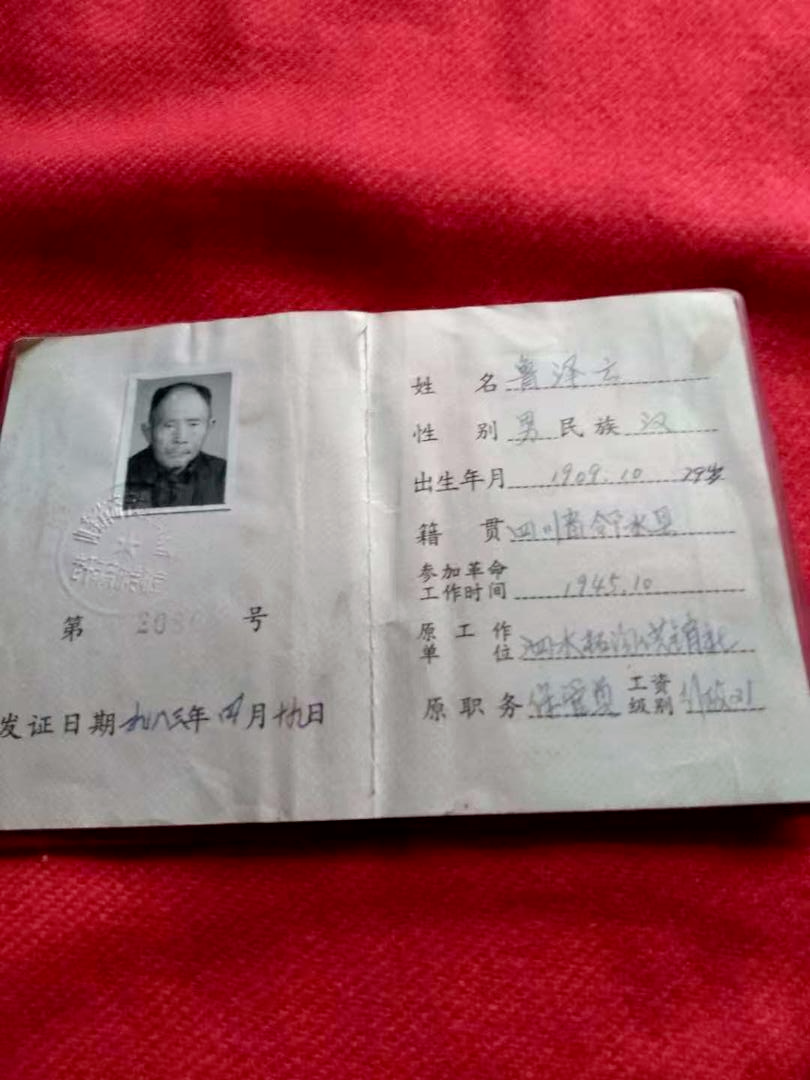 第 号
发证日期 一九八三年四月十九日
姓名 鲁泽云
性别 男 民族 汉
出生年月 1909.10
籍贯 四川省邻水县
参加革命工作时间 1945.10
原工作单位 泗水 供销社
原职务 保管员 工资级别 行政21